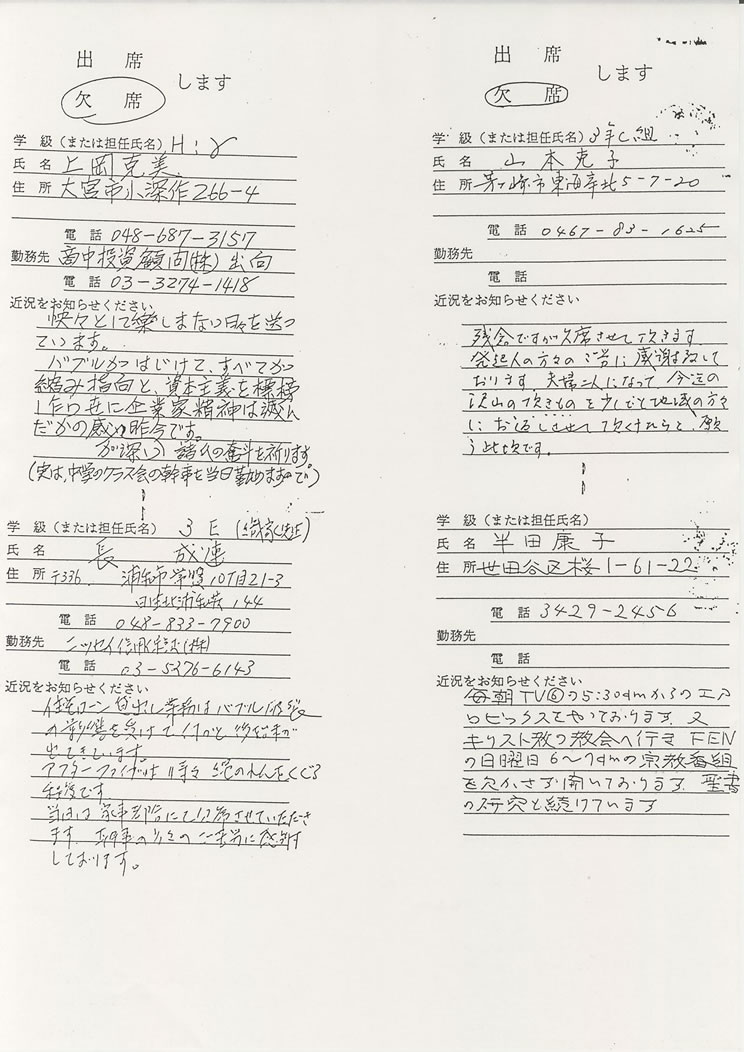 出 席
欠 席
します
学 級（または担任氏名）H:8
氏 名 上岡克美
住 所 大宮市小深作266-4
電 話 048-687-3157
勤務先 商中投資顧問(株)出向
電 話 03-3274-1418
近況をお知らせください
怏々として楽しまない日々を送っ
ています。
バブルがはじけて、すべてが
縮み指向と、資本主義を標榜
企業家精神は滅ん
だかの感の昨今です。
諸氏の奮斗を祈ります
(実は、中学のクラス会の幹事を当日勤めますので)
学 級（または担任氏名） 3 E
氏 名 長 成連
住 所 〒336. 浦和市常盤10丁目21-3
144
電 話 048-833-7900
勤務先 ニッセイ信用保証(株)
電 話 03-5276-6143
近況をお知らせください
住宅ローン貸出し業務はバブル破裂
の影響を受けて
出てきています。
アフターファイブは 縄のれんをくぐる
程度です
当日は 家事都合にて欠席させていただき
ます. 幹事の方々のご苦労に感謝
しております。
出 席
欠 席
します
学 級（または担任氏名）3年C組
氏 名 山本克子
住 所 茅ヶ崎市東海岸北5-7-20
電 話 0467-83-1625
勤務先
電 話
近況をお知らせください
残念ですが欠席させて頂きます.
発起人の方々のご労に感謝致して
おります. 夫婦二人になって 今迄の
沢山の頂きものを少しでも地域の方々
に お返しさせて頂くれたらと、願
う此頃です。
学 級（または担任氏名）
氏 名 半田康子
住 所 世田谷区桜1-61-22
電 話 3429-2456
勤務先
電 話
近況をお知らせください
毎朝TV⑥の5:30amからのエア
ロビックスをやっております. 又
キリスト教の教会へ行き FEN
の日曜日6〜7amの宗教番組
を欠かさず聞いております. 聖書
の研究も続けています